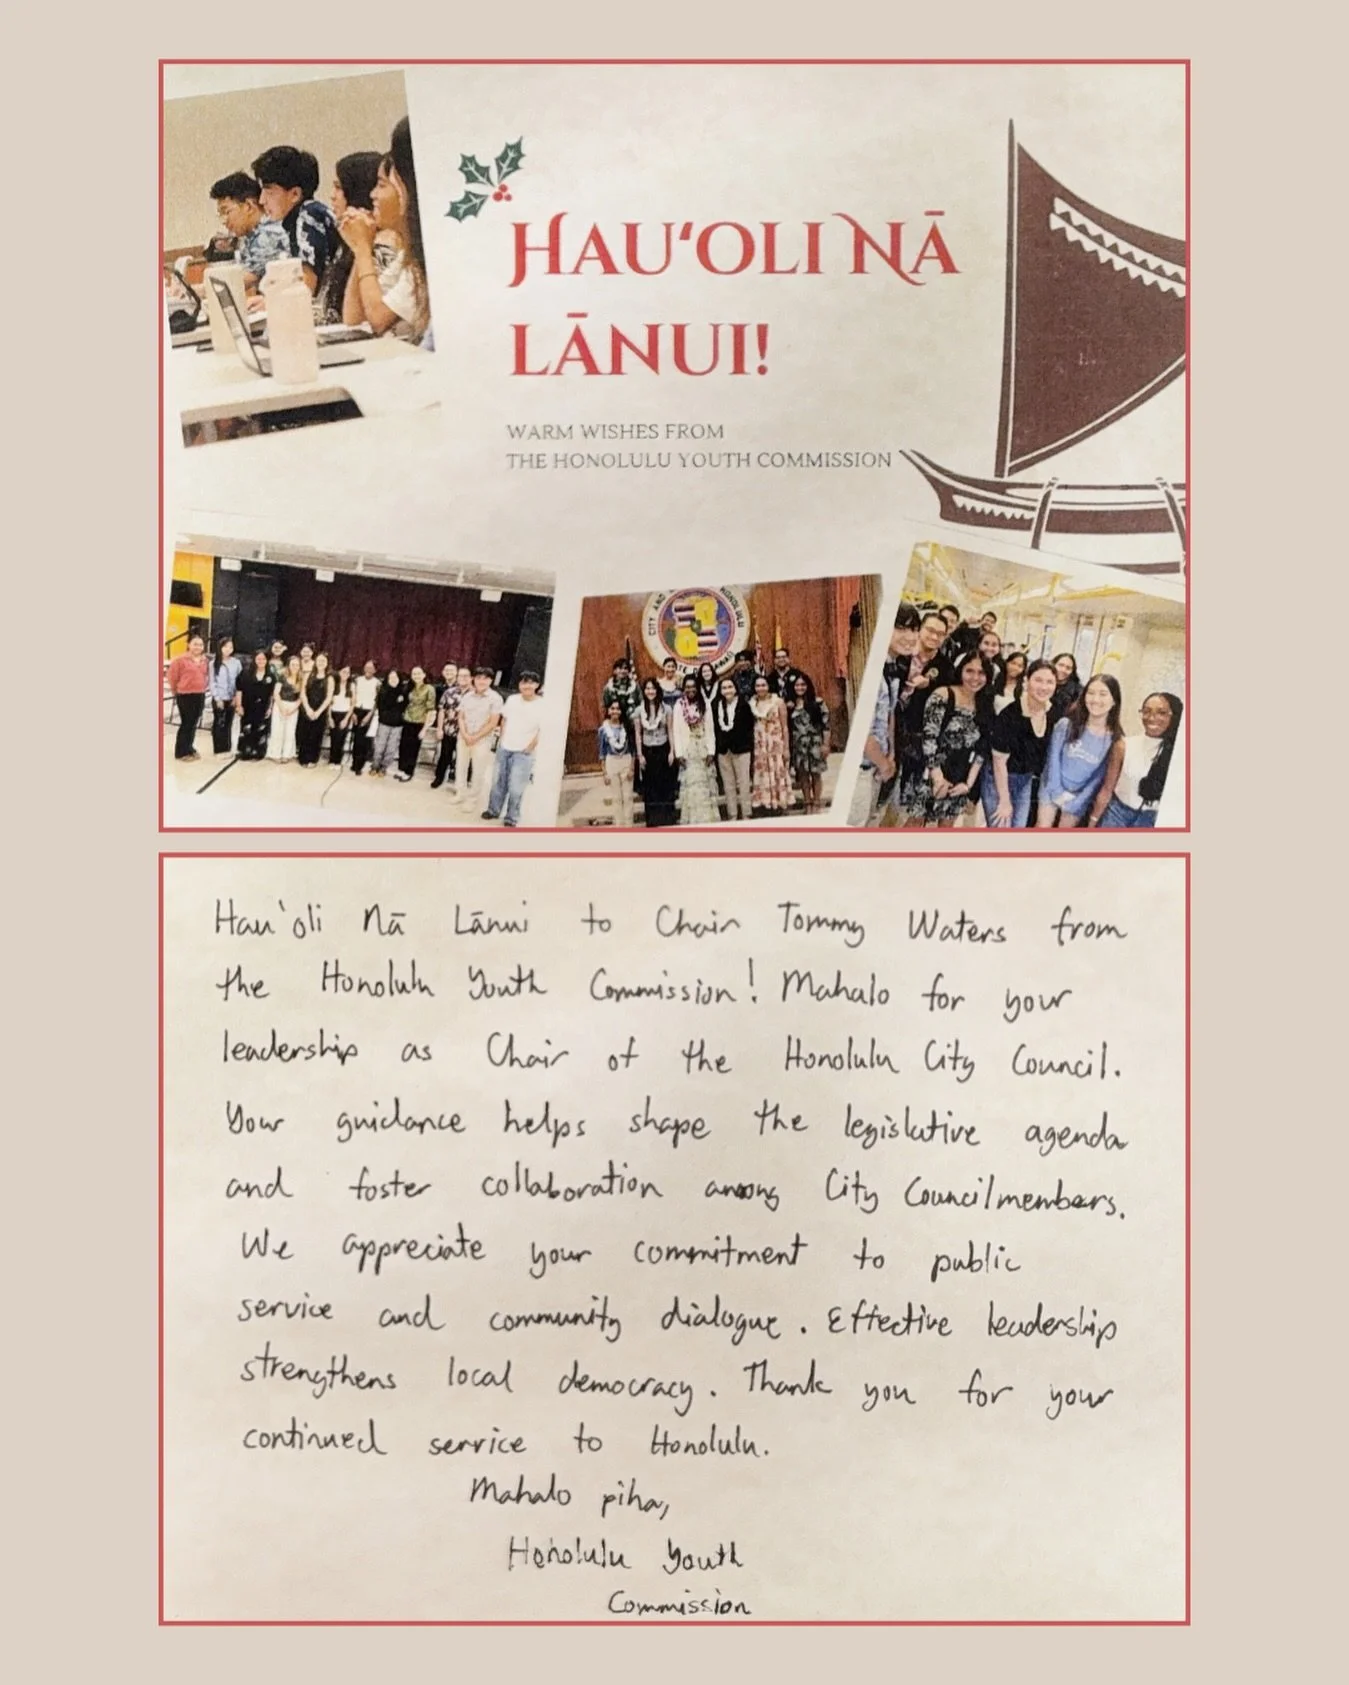 HAUʻOLI NĀ
LĀNUI!
WARM WISHES FROM
THE HONOLULU YOUTH COMMISSION
CITY AND HONOLULU
STATE OF HAWAII
Hau'oli Nā Lānui to Chair Tommy Waters from
the Honolulu Youth Commission! Mahalo for your
leadership as Chair of the Honolulu City Council.
Your guidance helps shape the legislative agenda
and foster collaboration among City Councilmembers.
We appreciate your commitment to public
service and community dialogue. Effective leadership
strengthens local democracy. Thank you for your
continued service to Honolulu.
Mahalo piha,
Honolulu Youth
Commission